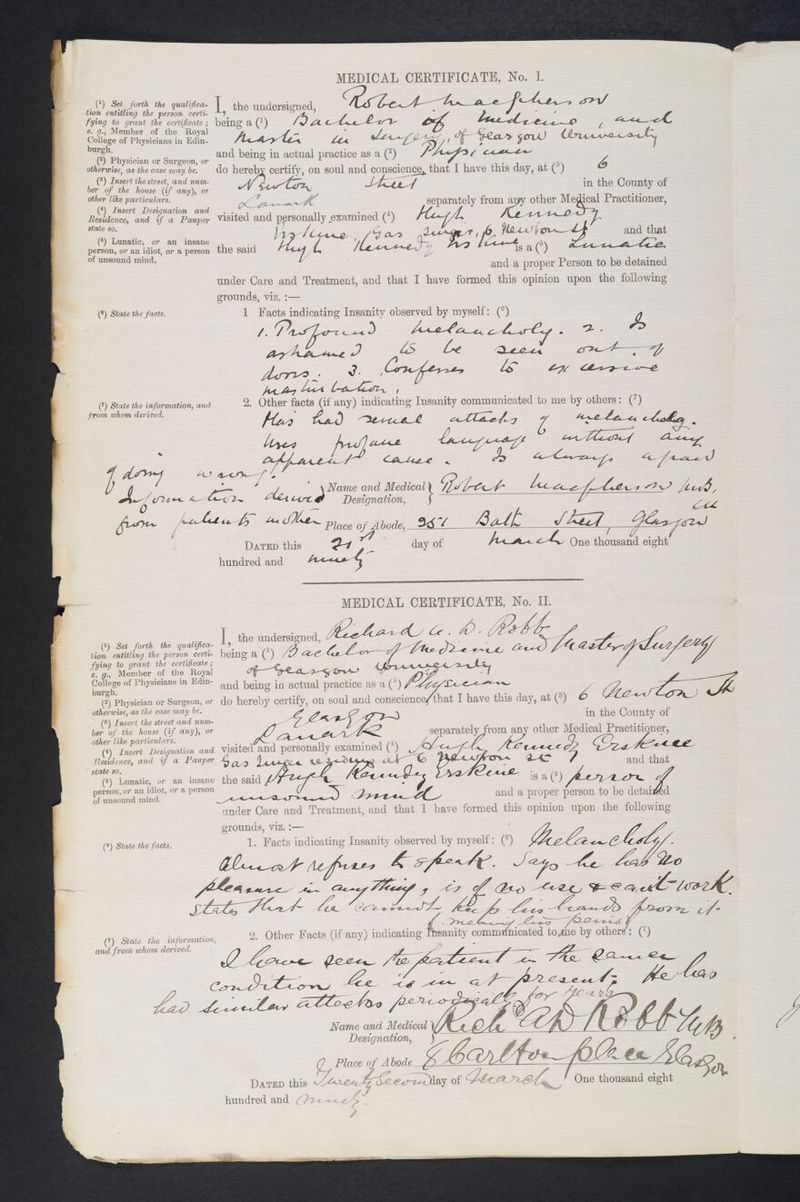 MEDICAL CERTIFICATE, No. I.
(¹) Set forth the qualifica-
tion entitling the person certi-
fying to grant the certificate;
e. g., Member of the Royal
College of Physicians in Edin-
burgh.
(²) Physician or Surgeon, or
otherwise, as the case may be.
(³) Insert the street, and num-
ber of the house (if any), or
other like particulars.
(⁴) Insert Designation and
Residence, and if a Pauper
state so.
(⁵) Lunatic, or an insane
person, or an idiot, or a person
of unsound mind.
I, the undersigned, Robert Macpherson
being a (¹) Bachelor of Medicine, and
Master in Surgery, of Glasgow University
and being in actual practice as a (²) Physician
do hereby certify, on soul and conscience, that I have this day, at (³) 6
Newton Street in the County of
Lanark separately from any other Medical Practitioner,
visited and personally examined (⁴) Hugh Kennedy
Erskine, Gas Singer, 6 Newton St and that
the said Hugh Kennedy Erskine is a (⁵) Lunatic
and a proper Person to be detained
under Care and Treatment, and that I have formed this opinion upon the following
grounds, viz. :—
(⁶) State the facts.
1 Facts indicating Insanity observed by myself: (⁶)
1. Profound melancholy. 2. Is
ashamed to be seen out of
doors. 3. Confesses to excessive
masturbation.
(⁷) State the information, and
from whom derived.
2. Other facts (if any) indicating Insanity communicated to me by others: (⁷)
Has had several attacks of melancholy.
Uses profane language without any
apparent cause. Is always afraid
of doing wrong.
Information derived
from patient's mother
Name and Medical Designation, Robert Macpherson M.B., CM
Place of Abode, 251 Bath Street, Glasgow
DATED this 21st day of March One thousand eight
hundred and ninety
MEDICAL CERTIFICATE, No. II.
(¹) Set forth the qualifica-
tion entitling the person certi-
fying to grant the certificate;
e. g., Member of the Royal
College of Physicians in Edin-
burgh.
(²) Physician or Surgeon, or
otherwise, as the case may be.
(³) Insert the street and num-
ber of the house (if any), or
other like particulars.
(⁴) Insert Designation and
Residence, and if a Pauper
state so.
(⁵) Lunatic, or an insane
person, or an idiot, or a person
of unsound mind.
I, the undersigned, Richard A. D. Robb
being a (¹) Bachelor of Medicine and Master of Surgery
of Glasgow University
and being in actual practice as a (²) Physician
do hereby certify, on soul and conscience that I have this day, at (³) 6 Newton St
Glasgow in the County of
Lanark separately from any other Medical Practitioner,
visited and personally examined (⁴) Hugh Kennedy Erskine
Gas Singer residing at 6 Newton St and that
the said Hugh Kennedy Erskine is a (⁵) person of
unsound mind and a proper person to be detained
under Care and Treatment, and that I have formed this opinion upon the following
grounds, viz. :—
(⁶) State the facts.
1. Facts indicating Insanity observed by myself: (⁶) Melancholy.
Almost refuses to speak. Says he has no
pleasure in anything, is of no use & can't work.
States that he cannot keep his hands from it
(meaning his penis)
(⁷) State the information,
and from whom derived.
2. Other Facts (if any) indicating Insanity communicated to me by others: (⁷)
I have seen the patient in the same
condition he is in at present. He has
had similar attacks periodically for years
Name and Medical Designation, Richd A D Robb MB
Place of Abode 8 Carlton place Glasgow
DATED this Twenty Second day of March One thousand eight
hundred and ninety.